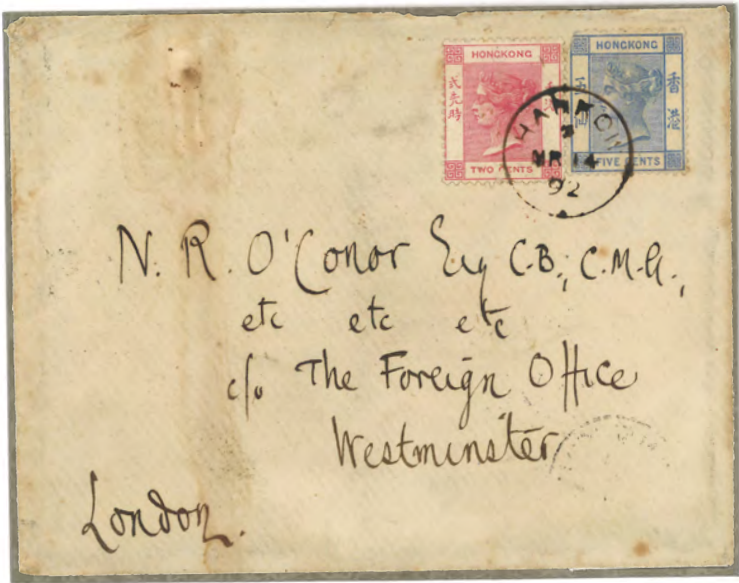 HONGKONG
HONGKONG
香港
TWO CENTS
FIVE CENTS
HANKOW
MR 14
92
N. R. O'Conor Esq C.B., C.M.G.,
etc etc etc
c/o The Foreign Office
Westminster
London.